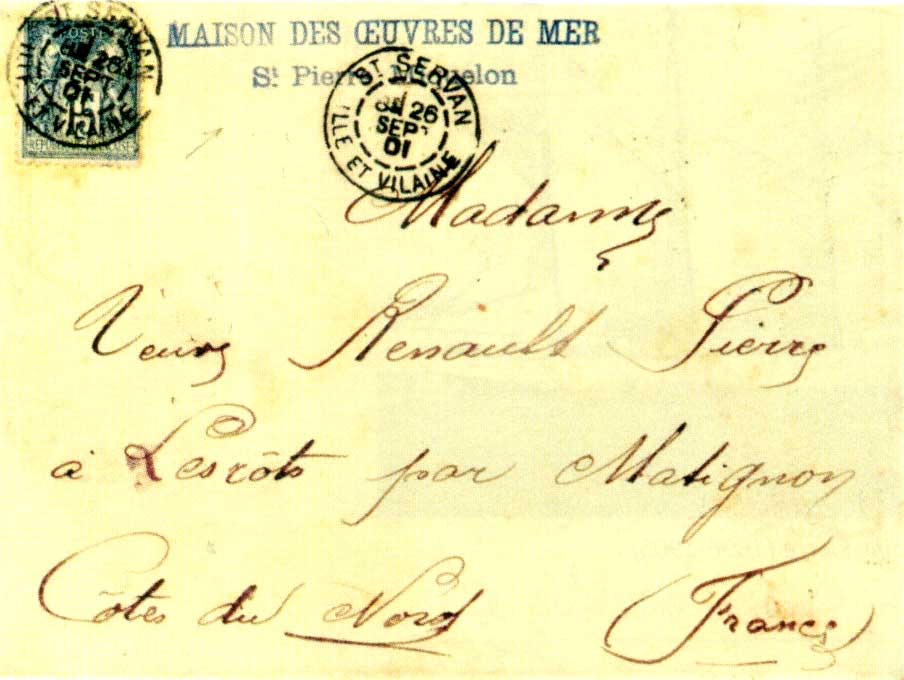 MAISON DES ŒUVRES DE MER
St Pierre Miquelon
POSTES
15
ST SERVAN
ILLE ET VILAINE
26
SEPT
01
ST SERVAN
8E 26
SEPT
01
ILLE ET VILAINE
Madame
Veuve Renault Pierre
à Lesrôts par Matignon
Côtes du Nord (France)